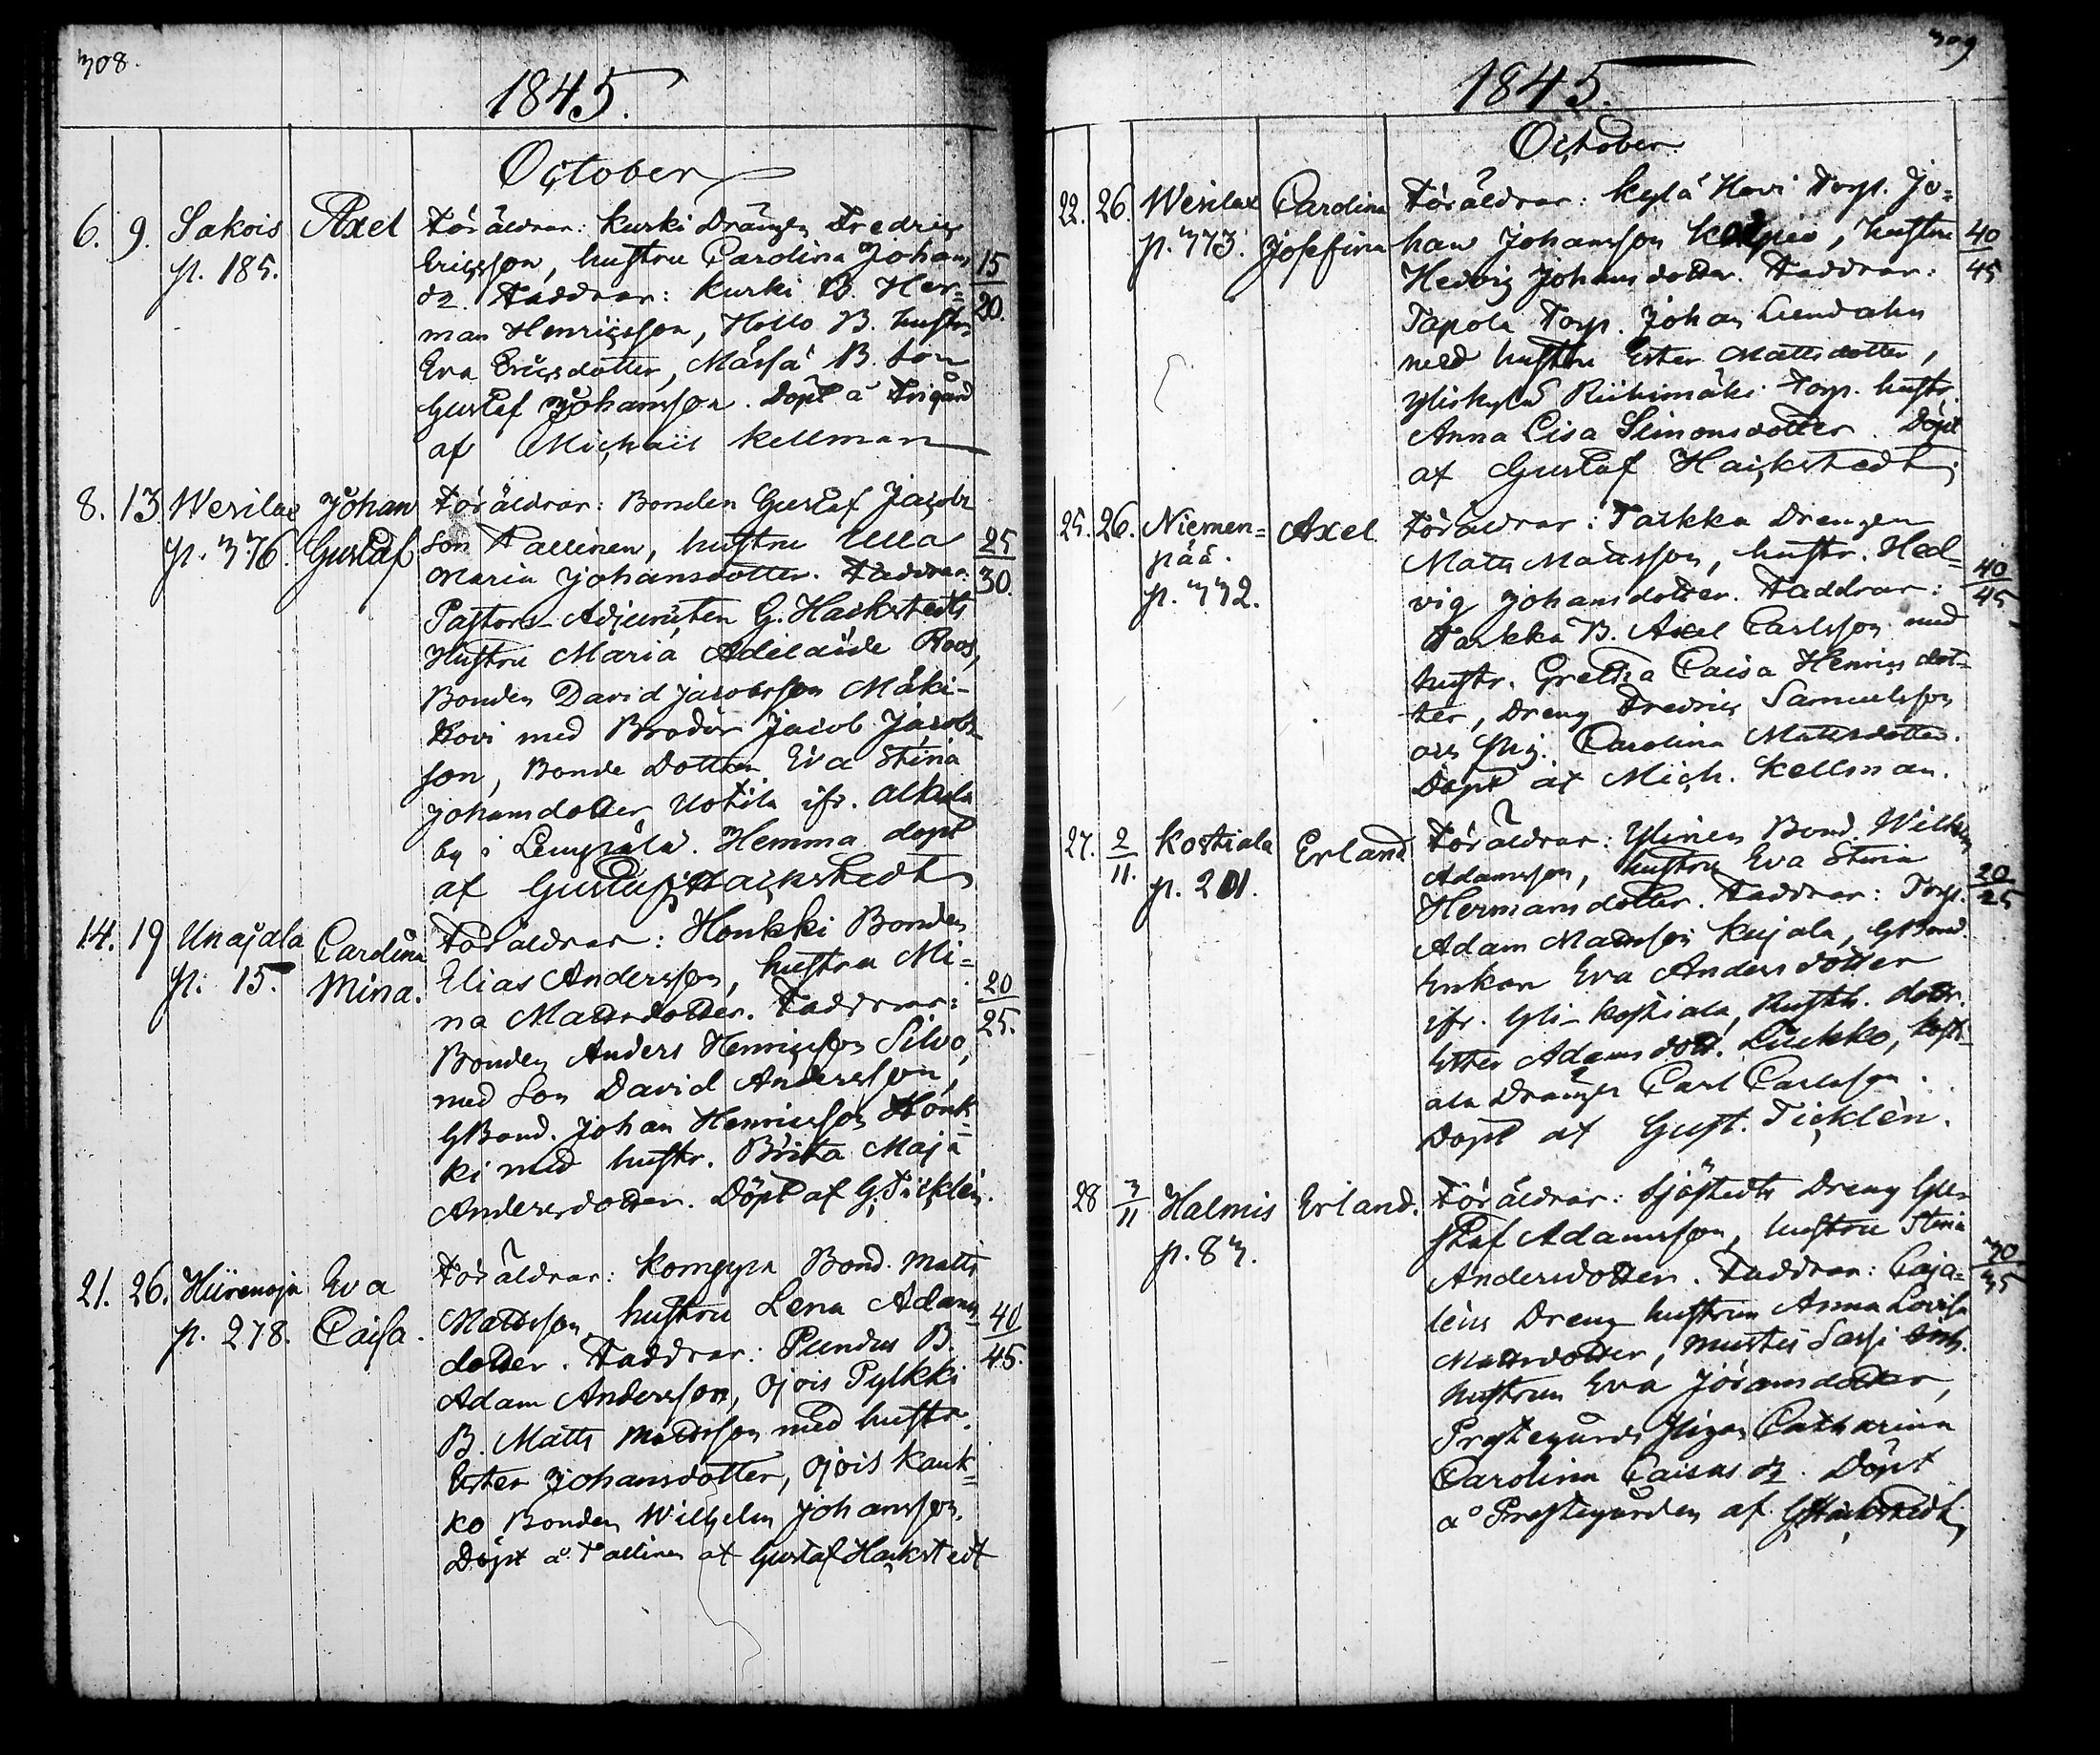 308.
1845.
October
6. 9. Sakois Axel Föräldrar: Kurki Drängen Fredric
p. 185. Ericsson, hustru Carolina Johans
dr. Faddrar: Kurki B. Her=
15/20.
man Henricsson, Hollo B. hustru
Eva Ericsdotter, Mässä B. Son
Gustaf Johansson. Döpt å
af Michaël Kellman
8. 13 Wesilax Johan Föräldrar: Bonden Gustaf Jacobs
p. 376. Gustaf son Pallinen, hustru Ulla
25/30.
Maria Johansdotter. Faddrar:
Pastors-Adjuncten G. Hackstedts
Hustru Maria Adelaide Roos,
Bonden David Jacobsson Mäki-
Hovi med Broder Jacob Jacobs
son, Bonde Dotter Eva Stina
Johansdotter Uotila ifr. Alkula
by i Lempiälä. Hemma döpt
af Gustaf Hackstedt
14. 19 Unajala Carolina Föräldrar: Honkki Bonden
p. 15. Mina. Elias Andersson, hustru Mi=
na Mattsdotter. Faddrar:
20/25.
Bonden Anders Henricsson Silvo,
med Son David Andersson,
GBond. Johan Henricsson Honk=
ki med hustr. Brita Maja
Andersdotter. Döpt af G. Ticklén.
21. 26. Hiirenoja Eva Föräldrar: Komppa Bond. Matts
p. 278. Caisa. Mattsson, hustru Lena Adams
40/45.
dotter. Faddrar: Pundus B.
Adam Andersson, Ojois Pylkki
B. Matts Mattsson med hustr.
Ester Johansdotter, Ojois Kauk=
ko Bonden Wilhelm Johansson.
Döpt å Pallinen af Gustaf Hackstedt
309
1845.
October.
22. 26. Wesilax Carolina Föräldrar: Kylä Hovi Torp. Jo=
p. 373. Josefina han Johansson, hustru
40/45
Hedvig Johansdotter. Faddrar:
Tapola Torp. Johan Lundahn
med hustru Ester Mattsdotter,
Yliskylä Riihimäki Torp. hustr.
Anna Lisa Simonsdotter. Döpt
af Gustaf Hackstedt.
25. 26. Niemen= Axel Föräldrar: Tarkka Drengen
pää. Matts Mattsson, hustr. Hed=
p. 332. vig Johansdotter. Faddrar:
40/45
Tarkka B. Axel Carlsson med
hustr. Gretha Caisa Henricsdot=
ter, Dreng Fredric Samuelsson
och Pig. Carolina Mattsdotter.
Döpt af Mich. Kellman.
27. 2/11. Kostiala Erland Föräldrar: Ylinen Bond. Wilhelm
p. 201. Adamsson, hustru Eva Stina
20/25
Hermansdotter. Faddrar: Torp.
Adam Mattsson Kujala, GBond.
Enkan Eva Andersdotter
ifr. Yli-Kostiala, Rusth. dottr.
Ester Adamsdott. Liukko, Kosti=
ala Dräng Carl Carlsson.
Döpt af Gust. Ticklén.
28 3/11 Halmis Erland. Föräldrar: Sjöstedts Dreng Gu=
p. 83. staf Adamsson, hustru Stina
30/35
Andersdotter. Faddrar: Caja=
léns Dreng hustrun Anna Lovisa
Mattsdotter, Mustis Sassi Inh.
hustrun Eva Göransdotter,
Prestegårds Pigan Catharina
Carolina Caisas dr. Döpt
å Prestegården af GHackstedt